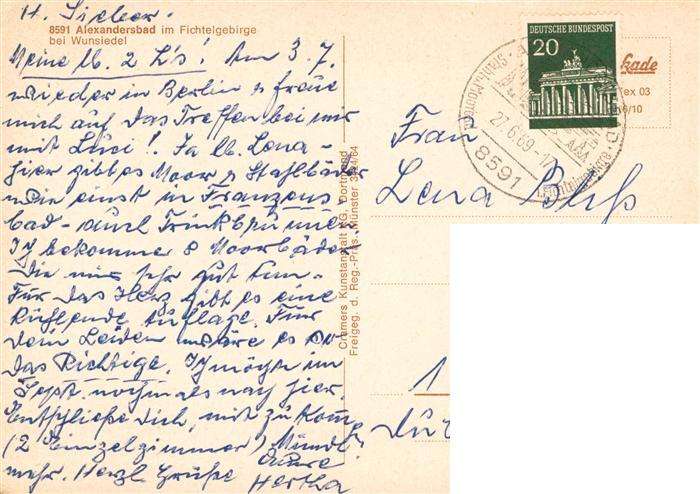 H. Sieber.
8591 Alexandersbad im Fichtelgebirge
bei Wunsiedel
Meine lb. 2 L's! Am 3.7.
wieder in Berlin u freue
mich auf das Treffen bei mir
mit Luci! Ja lb. Lena-
hier gibt es Moor u Stahlbäder
wie einst in Franzens-
bad - auch Trinkbrunnen.
Ich bekomme 8 Moorbäder
Die mir sehr gut tun-
Für das Herz gibt es eine
kühlende Auflage. Für
dein Leiden wäre es so
das Richtige. Ich möchte im
Sept nochmals nach hier.
Entschließe Dich, mit zu kom
(2 Einzelzimmer) Mündl.
mehr. Herzl Grüße Eure
Hertha
Cramers Kunstanstalt KG, Dortmund
Freigeg. d. Reg.-Präs. Münster
DEUTSCHE BUNDESPOST
20
27.6.69
8591
Fichtelgebirge
kade
Tex 03
6/10
Frau
Lena
1